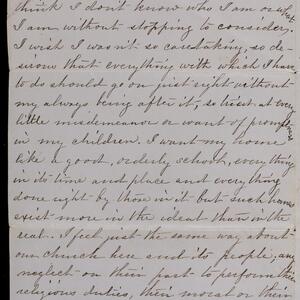 think I don't know who I am or what
I am, without stopping to consider.
I wish I wasn't so caretaking, so de-
sirous that everything with which I have
to do should go on just right without
my always being after it, so hurt at every
little misdemeanor or want of promptness
in my children. I want my home
like a good, orderly school, everything
in its time and place and everything
done right by those in it but such homes
exist more in the ideal than in the
real. I feel just the same way about
our church here and its people, any
neglect on their part to perform their
religious duties, their moral or their